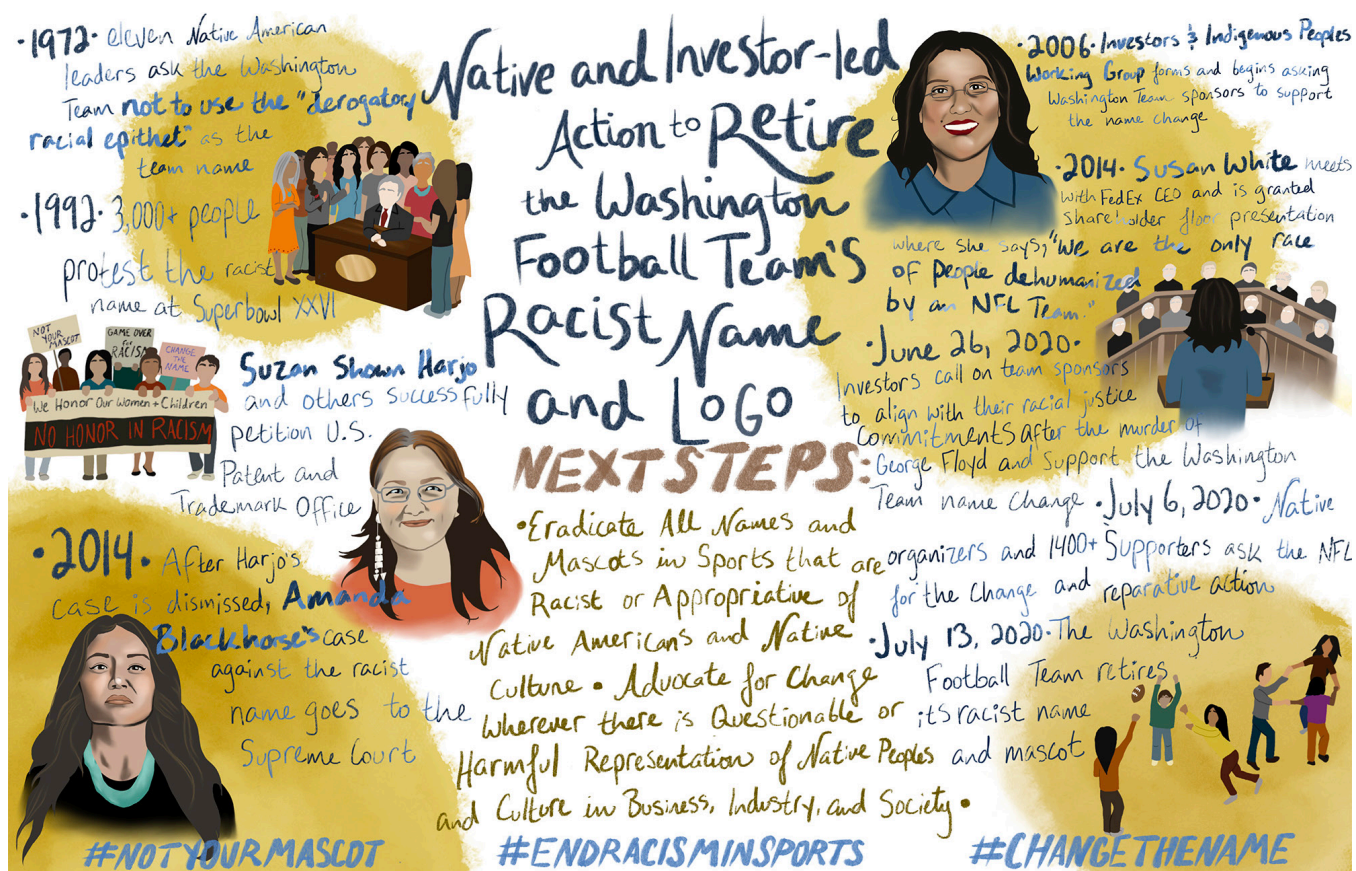 Native and Investor-led
Action to Retire
the Washington
Football Team's
Racist Name
and Logo
·1972· eleven Native American
leaders ask the Washington
Team not to use the "derogatory
racial epithet" as the
team name
·1992· 3,000+ people
protest the racist
name at Superbowl XXVI
NOT
YOUR
MASCOT
GAME OVER
for
RACISM
CHANGE
THE
NAME
We Honor Our Women + Children
NO HONOR IN RACISM
Suzan Shown Harjo
and others successfully
petition U.S.
Patent and
Trademark Office
·2014· After Harjo's
case is dismissed, Amanda
Blackhorse's case
against the racist
name goes to the
Supreme Court
·2006· Investors & Indigenous Peoples
Working Group forms and begins asking
Washington Team sponsors to support
the name change
·2014· Susan White meets
with FedEx CEO and is granted
shareholder floor presentation
where she says, "we are the only race
of people dehumanized
by an NFL Team."
·June 26, 2020·
Investors call on team sponsors
to align with their racial justice
commitments after the murder of
George Floyd and support the Washington
Team name change ·July 6, 2020· Native
organizers and 1400+ Supporters ask the NFL
for the change and reparative action
·July 13, 2020· The Washington
Football Team retires
its racist name
and mascot
NEXT STEPS:
•Eradicate All Names and
Mascots in Sports that are
Racist or Appropriative of
Native Americans and Native
Culture • Advocate for Change
Wherever there is Questionable or
Harmful Representation of Native Peoples
and Culture in Business, Industry, and Society •
#NOTYOURMASCOT
#ENDRACISMINSPORTS
#CHANGETHENAME